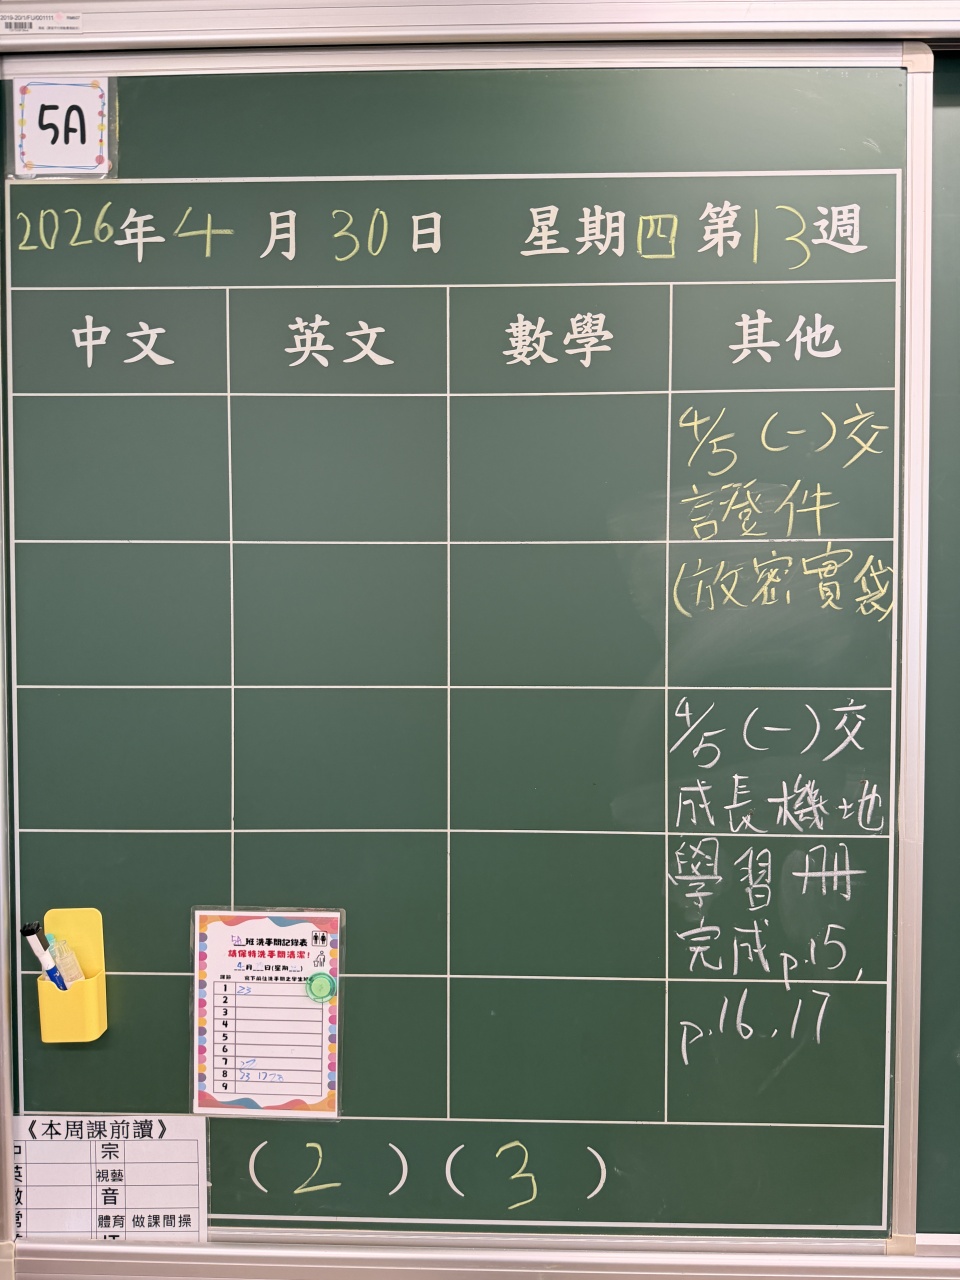 2019-20/1/FU/001111
5A
2026年4月30日 星期四第13週
中文 英文 數學 其他
4/5 (一)交
證件
(放密實袋
4/5 (一)交
成長機地
學習冊
完成p.15,
p.16,17
5A班洗手間記錄表
請保持洗手間清潔!
4月 日(星期 )
1 23
2
3
4
5
6
7
8
9
《本周課前讀》
宗
視藝
音
體育 做課間操
(2)(3)